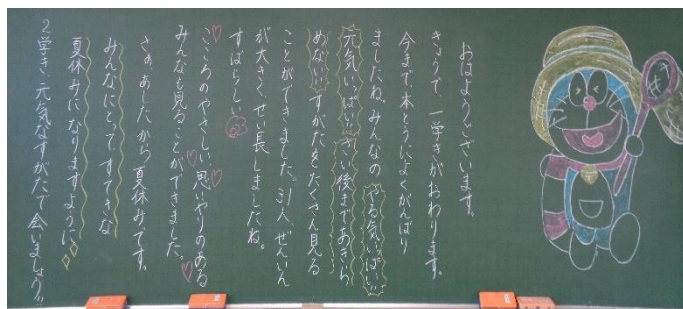 おはようございます。
きょうで、一学きがおわります。
今まで本とうによくがんばり
ましたね。みんなの やる気いっぱい
元気いっぱい さい後まであきら
めない すがたをたくさん見る
ことができました。31人 ぜんいん
が大きく せい長しましたね。
すばらしい
こころのやさしい 思いやりのある
みんなも見ることができました。
さぁ、あしたから 夏休みです。
みんなにとってすてきな
夏休みになりますように
2学き、元気なすがたで会いましょう!!